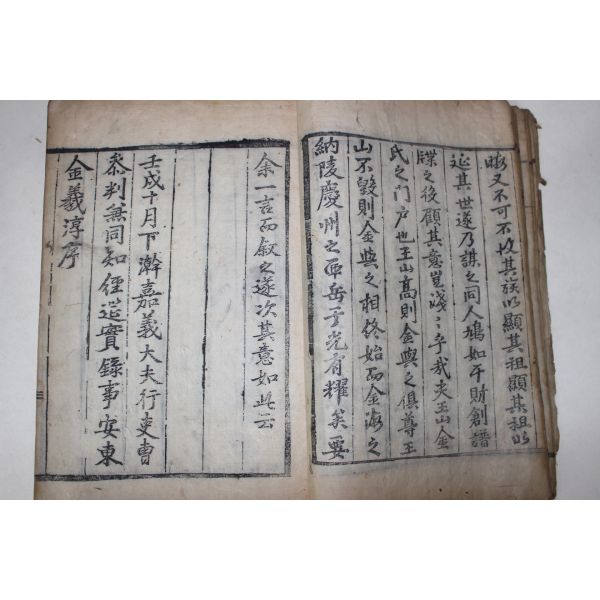 晦又不可不收其族以顯其祖顯其祖以
延其世遂乃謀之同人鳩如干財創譜
牒之後顧其意豈淺〻乎哉夫玉山金
氏之門戶也玉山高則金與之俱尊玉
山不毀則金與之相終始而金海之
納陵慶州之 岳于光有耀矣要
余一言而叙之遂次其意如此云
壬戌十月下澣嘉義大夫行吏曹
叅判兼同知經筵實錄事安東
金羲淳序